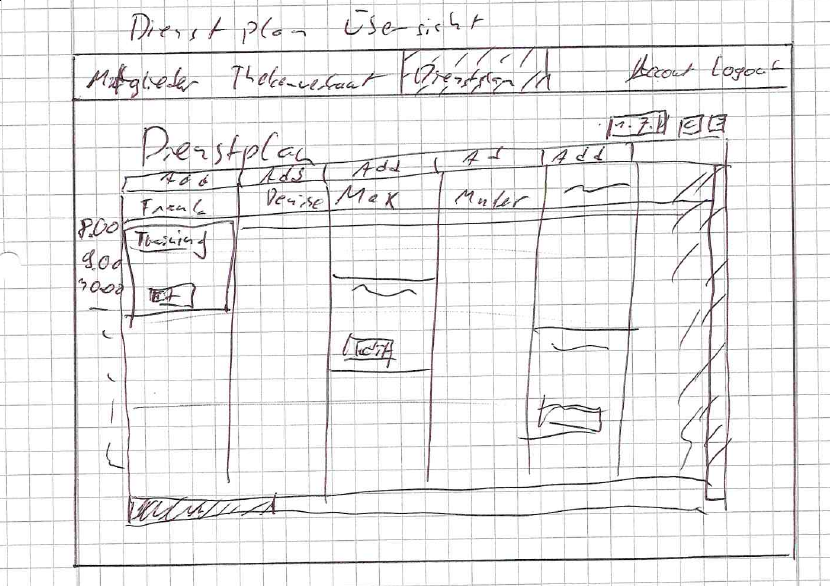 Dienstplan Übersicht
Mitglieder Thekenverkauf Dienstplan Account Logout
Dienstplan
Add Add Add Add Add
Frank Denise Max
8.00 Training
9.00
10.00
Edit